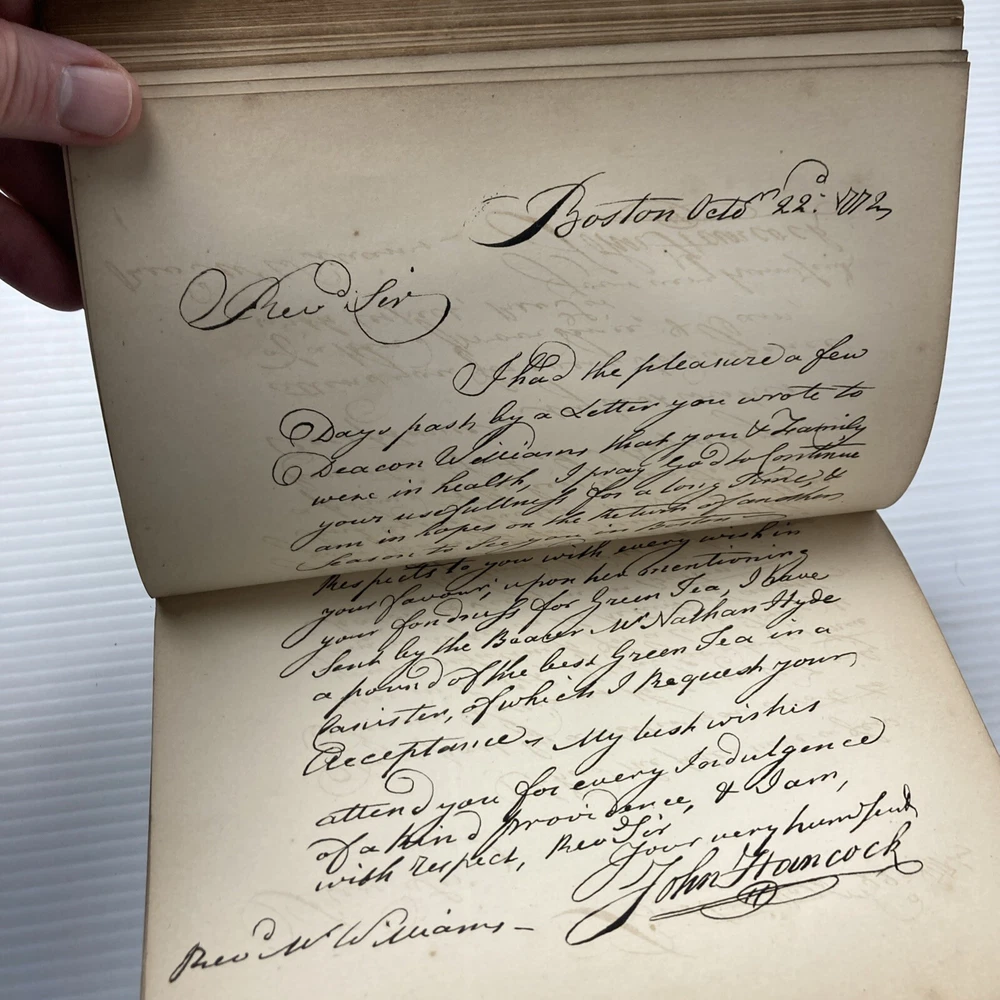 Boston Octoʳ 22ᵈ: 1772,
Revᵈ Sir
I had the pleasure a few
Days past by a Letter you wrote to
Deacon Williams that you & Family
were in health, I pray God to Continue
your usefullness for a long Time, &
am in hopes on the Return of another
Season to See you in Boston
Respects to you with every wish in
your favour; upon her mentioning
your fondness for Green Tea, I have
Sent by the Bearer Mʳ Nathan Hyde
a pound of the best Green Tea in a
Canister, of which I Request your
Acceptance, My best wishes
attend you for every Indulgence
of a kind providence, & I am,
with respect, Revᵈ Sir
Your very hum Servᵗ
John Hancock
Revᵈ Mʳ Williams –